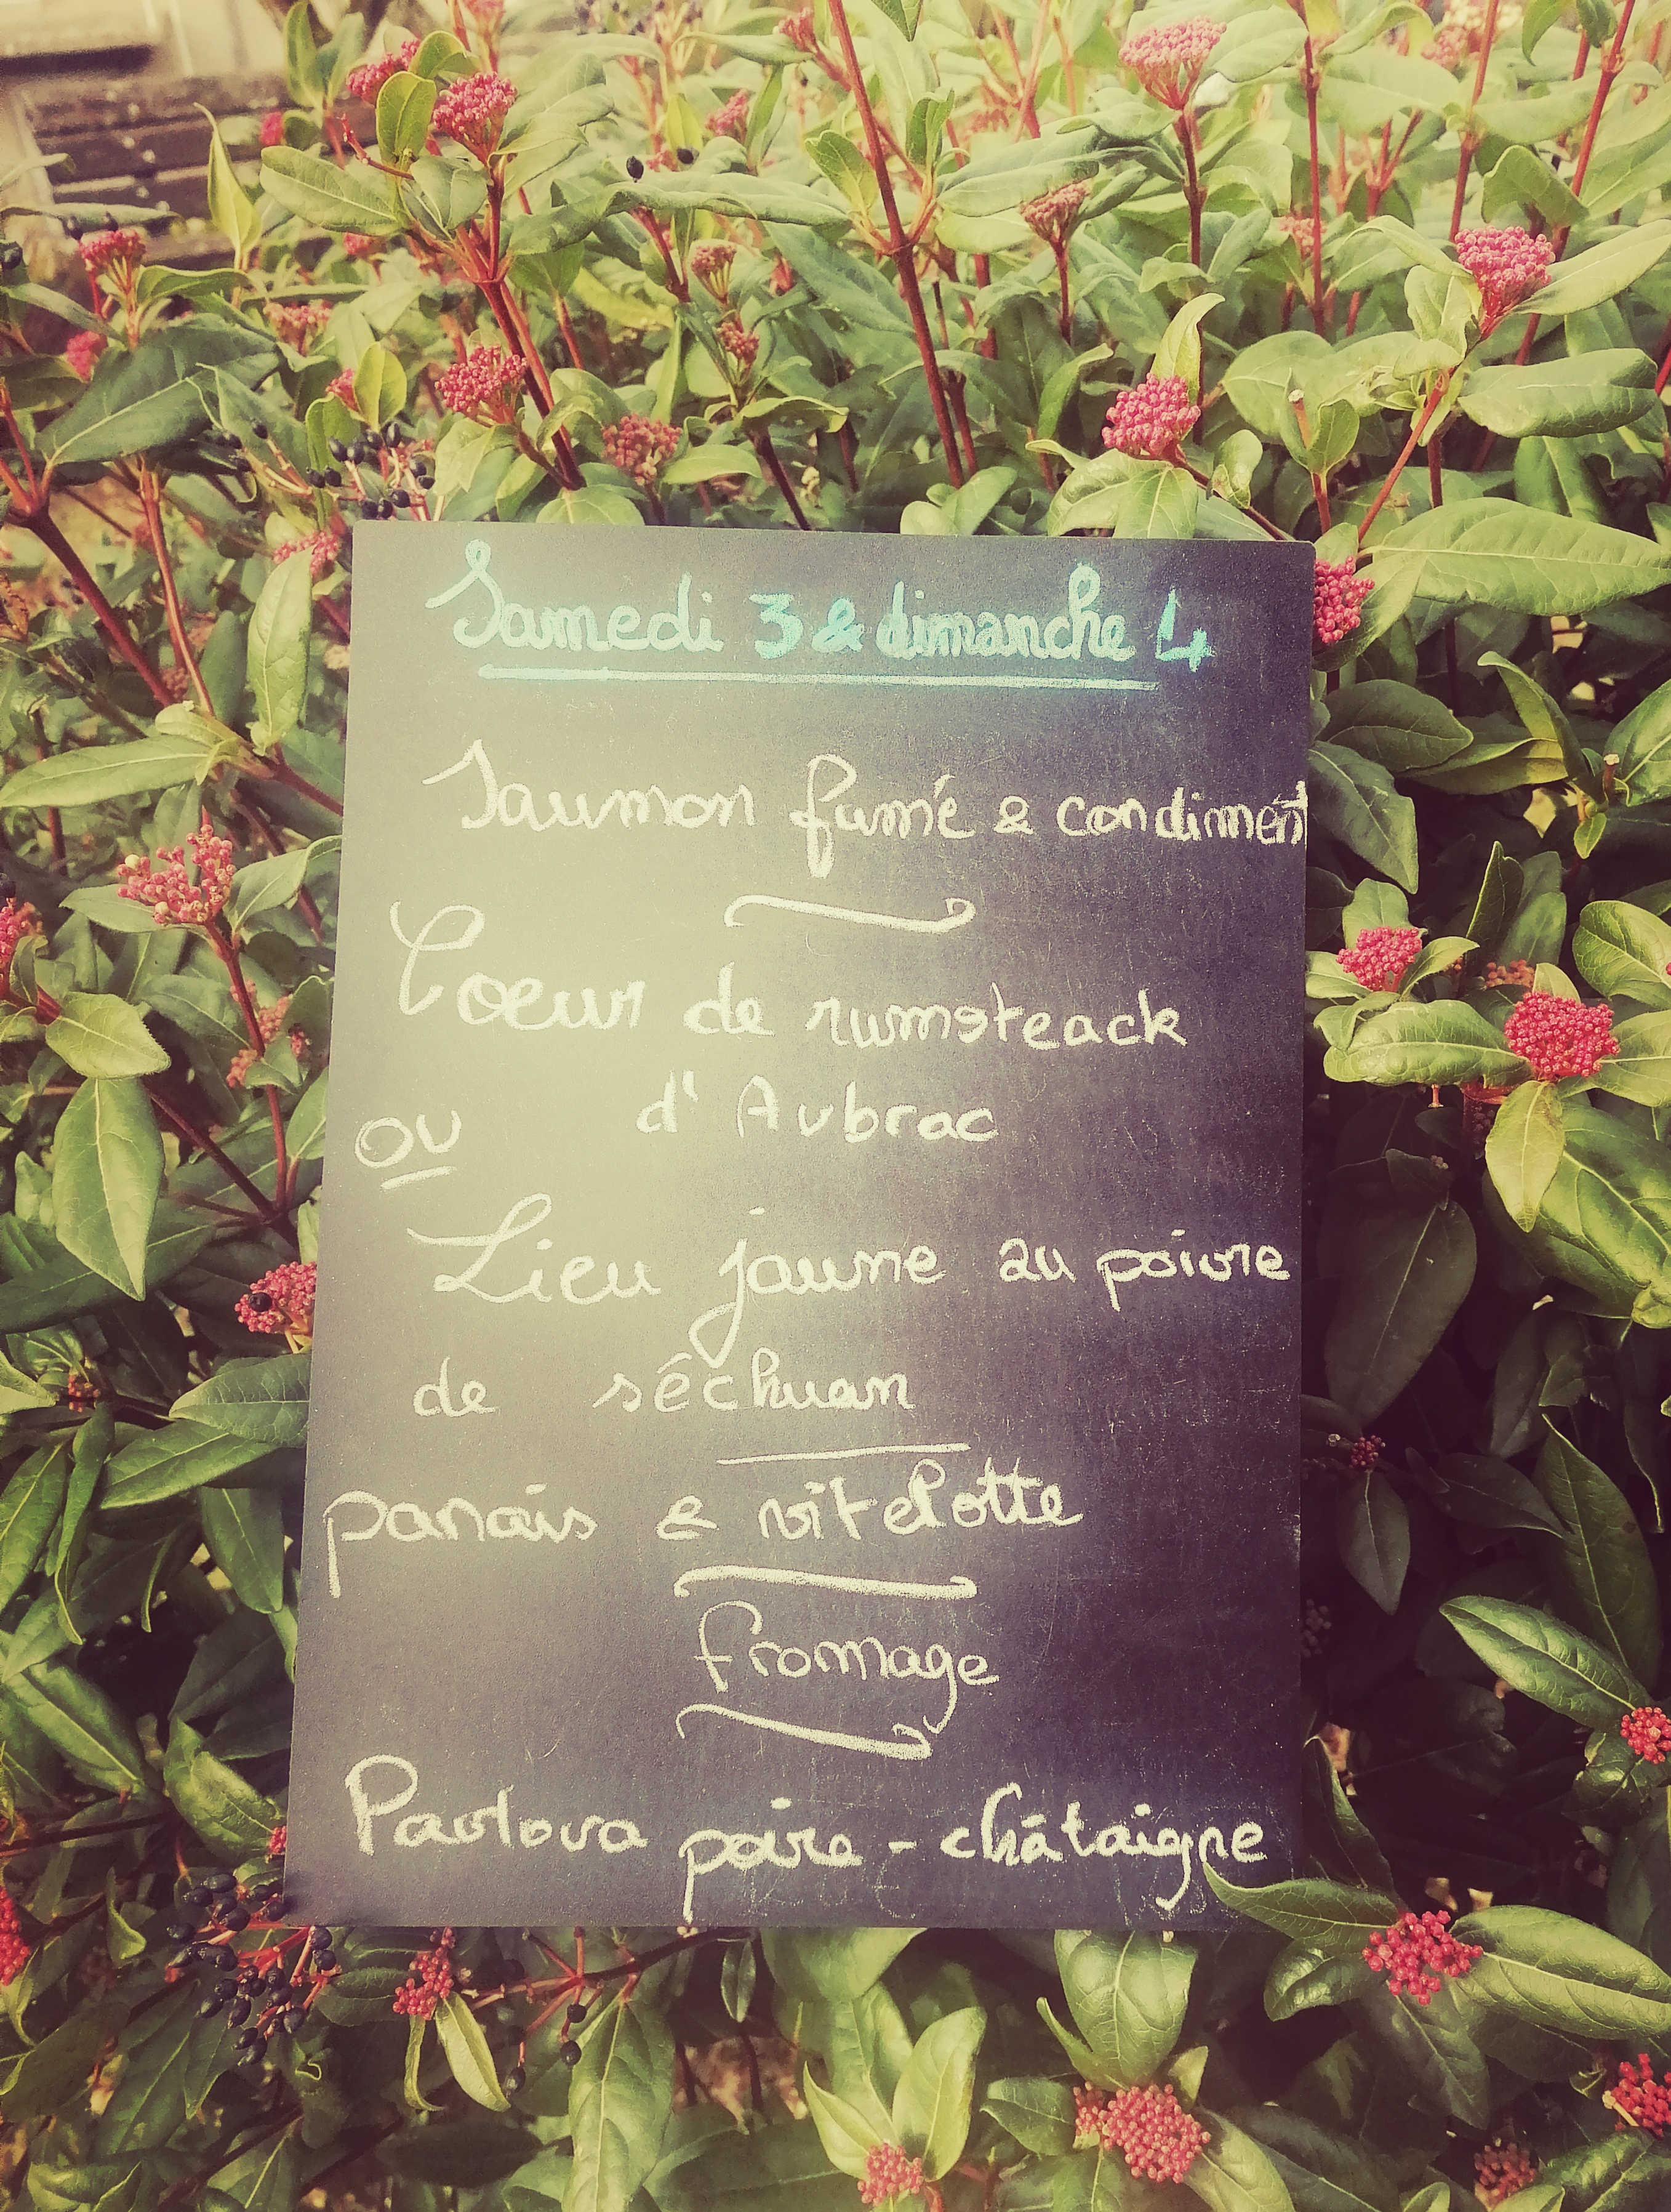 Samedi 3 & dimanche 4
Saumon fumé & condiment
Coeur de rumsteack
d'Aubrac
ou
Lieu jaune au poivre
de sêchuan
panais & vitelotte
fromage
Pavlova poire - châtaigne